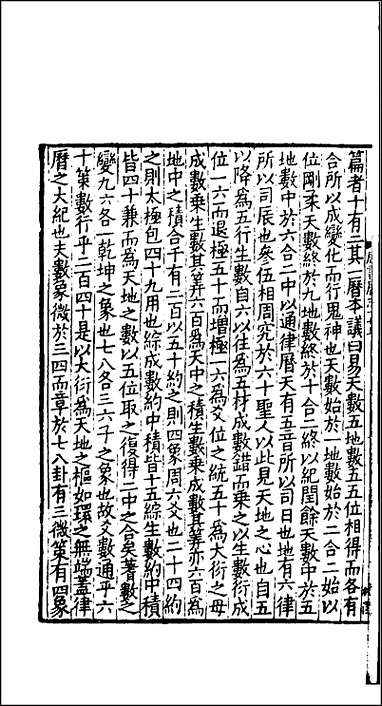 篇者十有二其一曆本議曰易天數五地數五五位相得而各有
合所以成變化而行鬼神也天數始於一地數始於二合二始以
位剛柔天數終於九地數終於十合二終以紀閏餘天數中於五
地數中於六合二中以通律曆天有五音所以司日也地有六律
所以司辰也參伍相周究於六十聖人以此見天地之心也自五
以降為五行生數自六以往為五材成數錯而乘之以生數衍成
位一六而退極五十而增極一六為爻位之統五十為大衍之母
成數乘生數其筭六百為天中之積生數乘成數其筭亦六百為
地中之積合千有二百以五十約之則四象周六爻也二十四約
之則太極包四十九用也綜成數約中積皆十五綜生數約中積
皆四十兼而為天地之數以五位取之復得二中之合矣蓍數之
變九六各一乾坤之象也七八各三六子之象也故爻數通乎六
十策數行乎二百四十是以大衍為天地之樞如環之無端蓋律
曆之大紀也夫數象微於三四而章於七八卦有三微策有四象